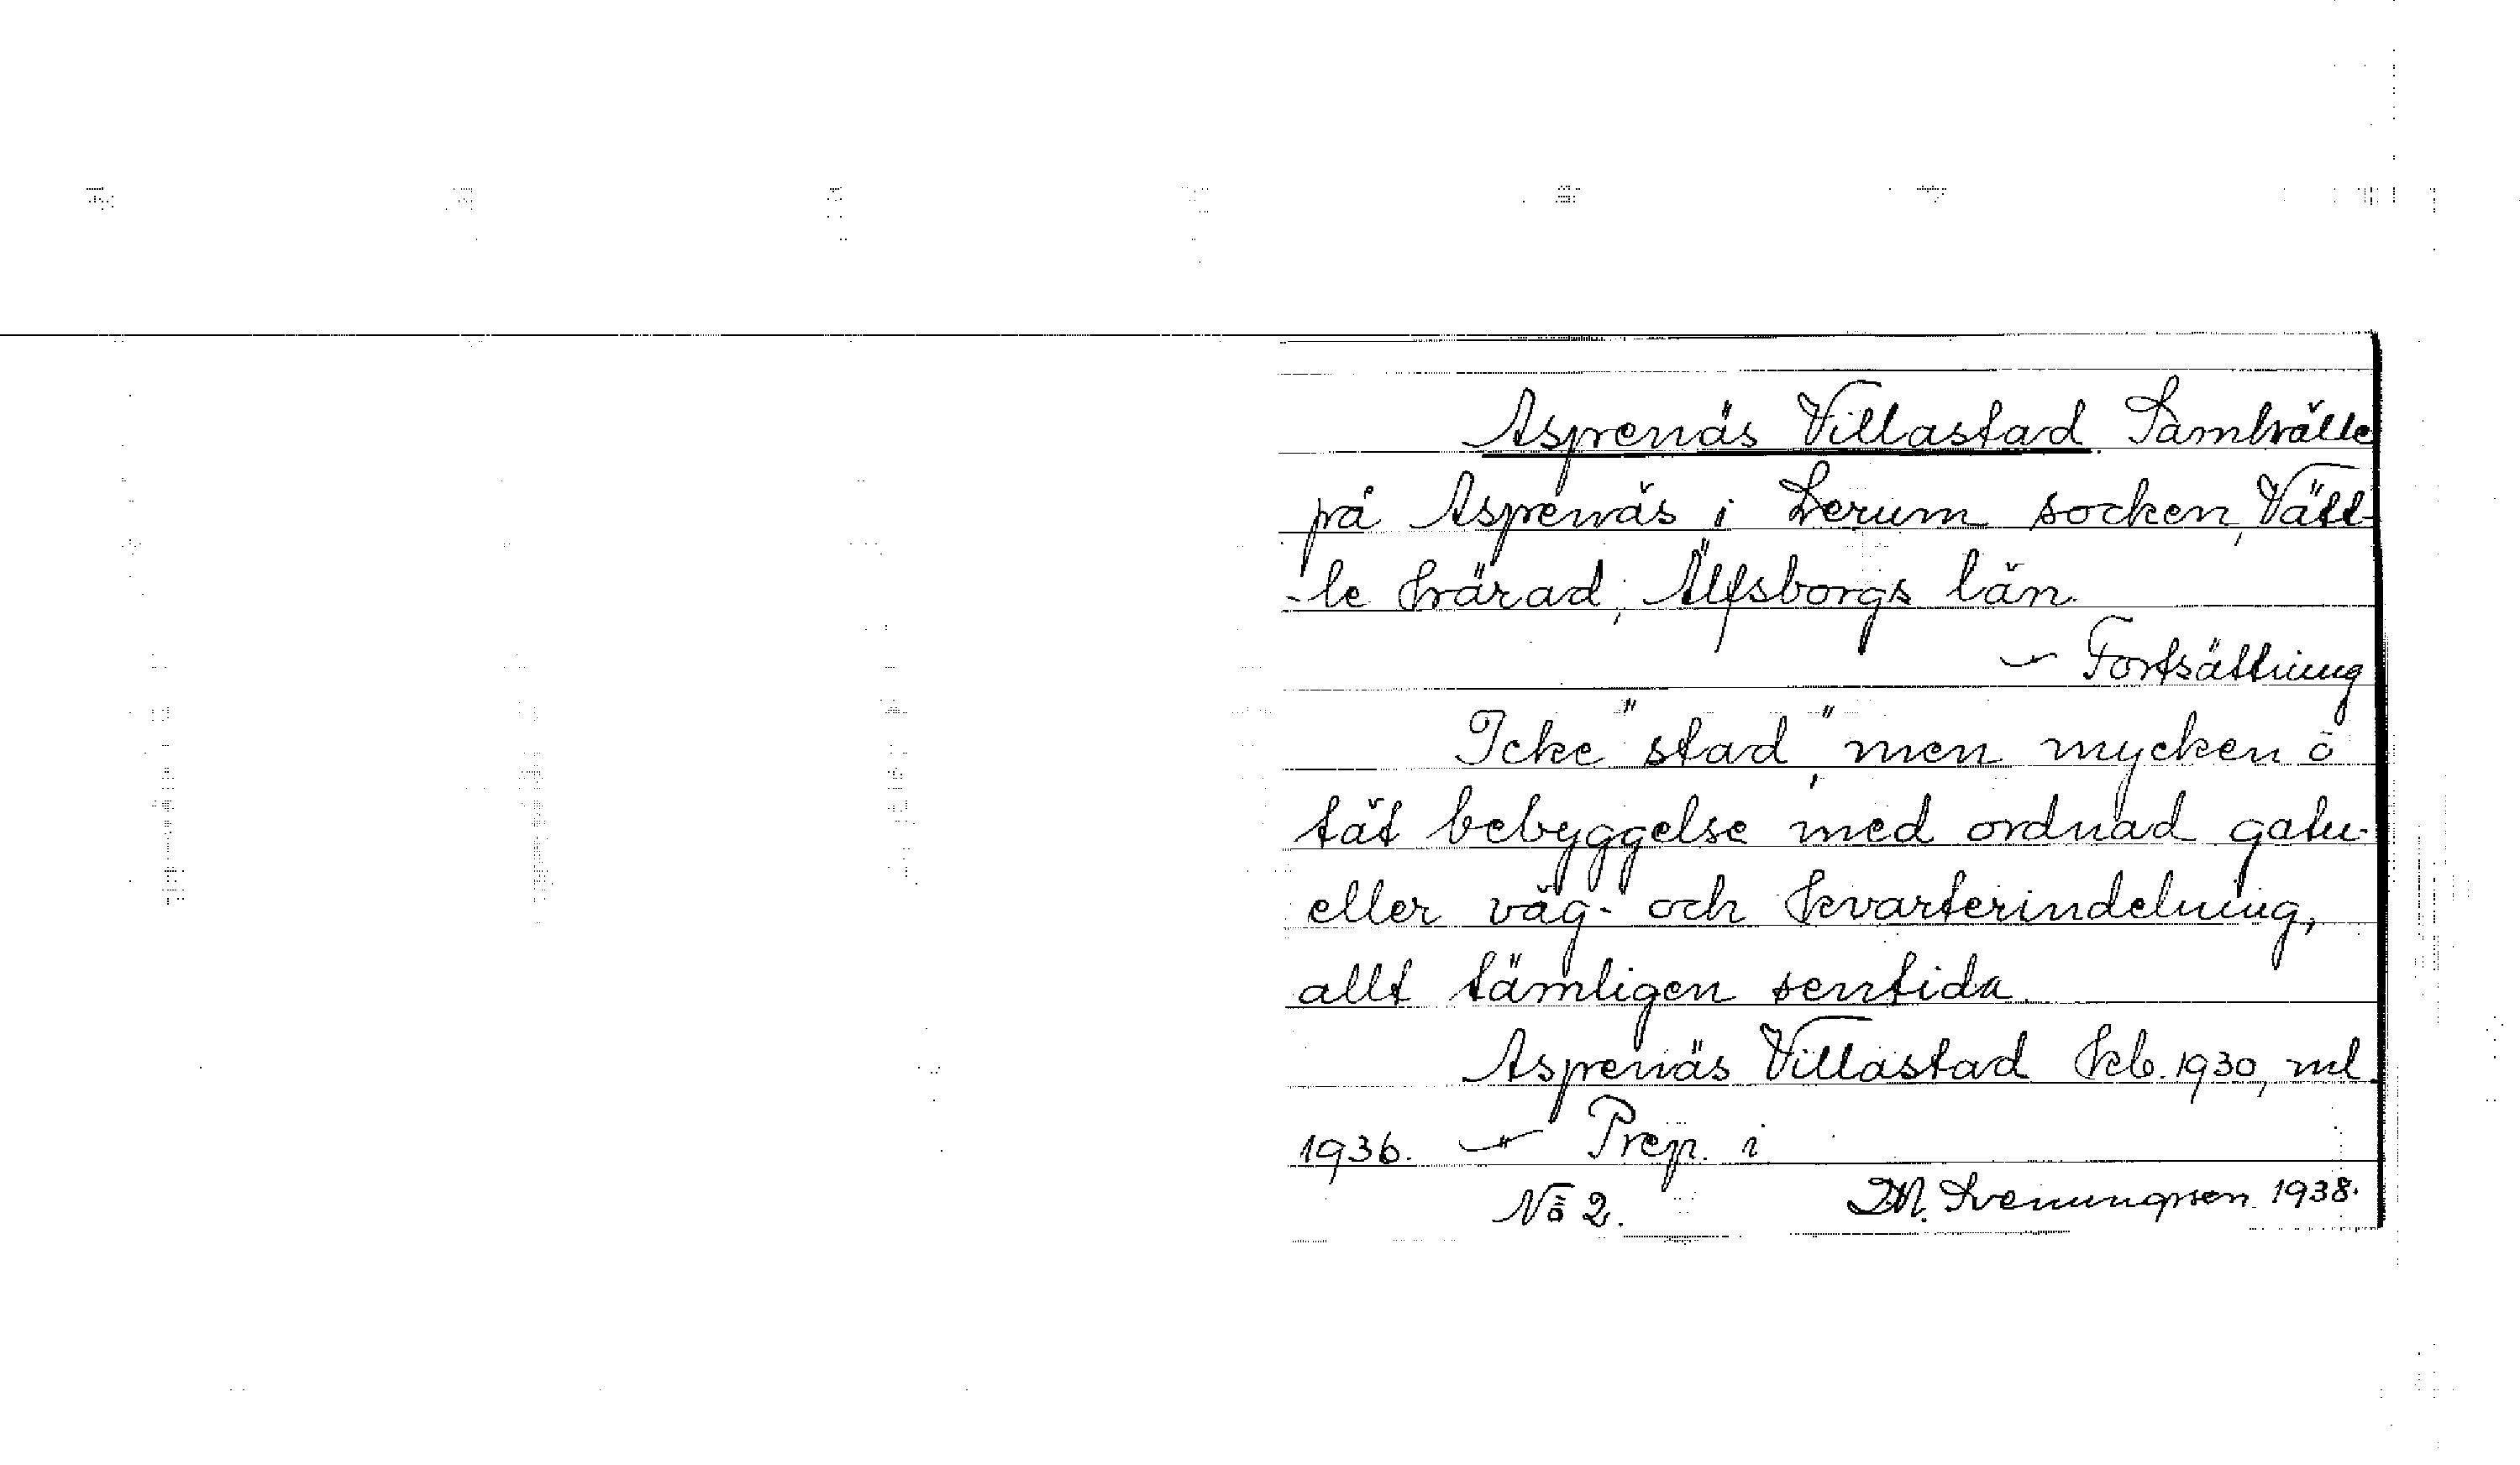 Aspenäs Villastad Samhälle
på Aspenäs i Lerum socken, Vätt-
-le härad, Älfsborgs län.
- Fortsättning
Icke "stad", men mycken o
tät bebyggelse med ordnad gatu-
eller väg- och kvarterindelning,
allt tämligen sentida.
Aspenäs Villastad kb. 1930, ml.
1936. - Prep. i
No 2. D.N. Svenungsson 1938.